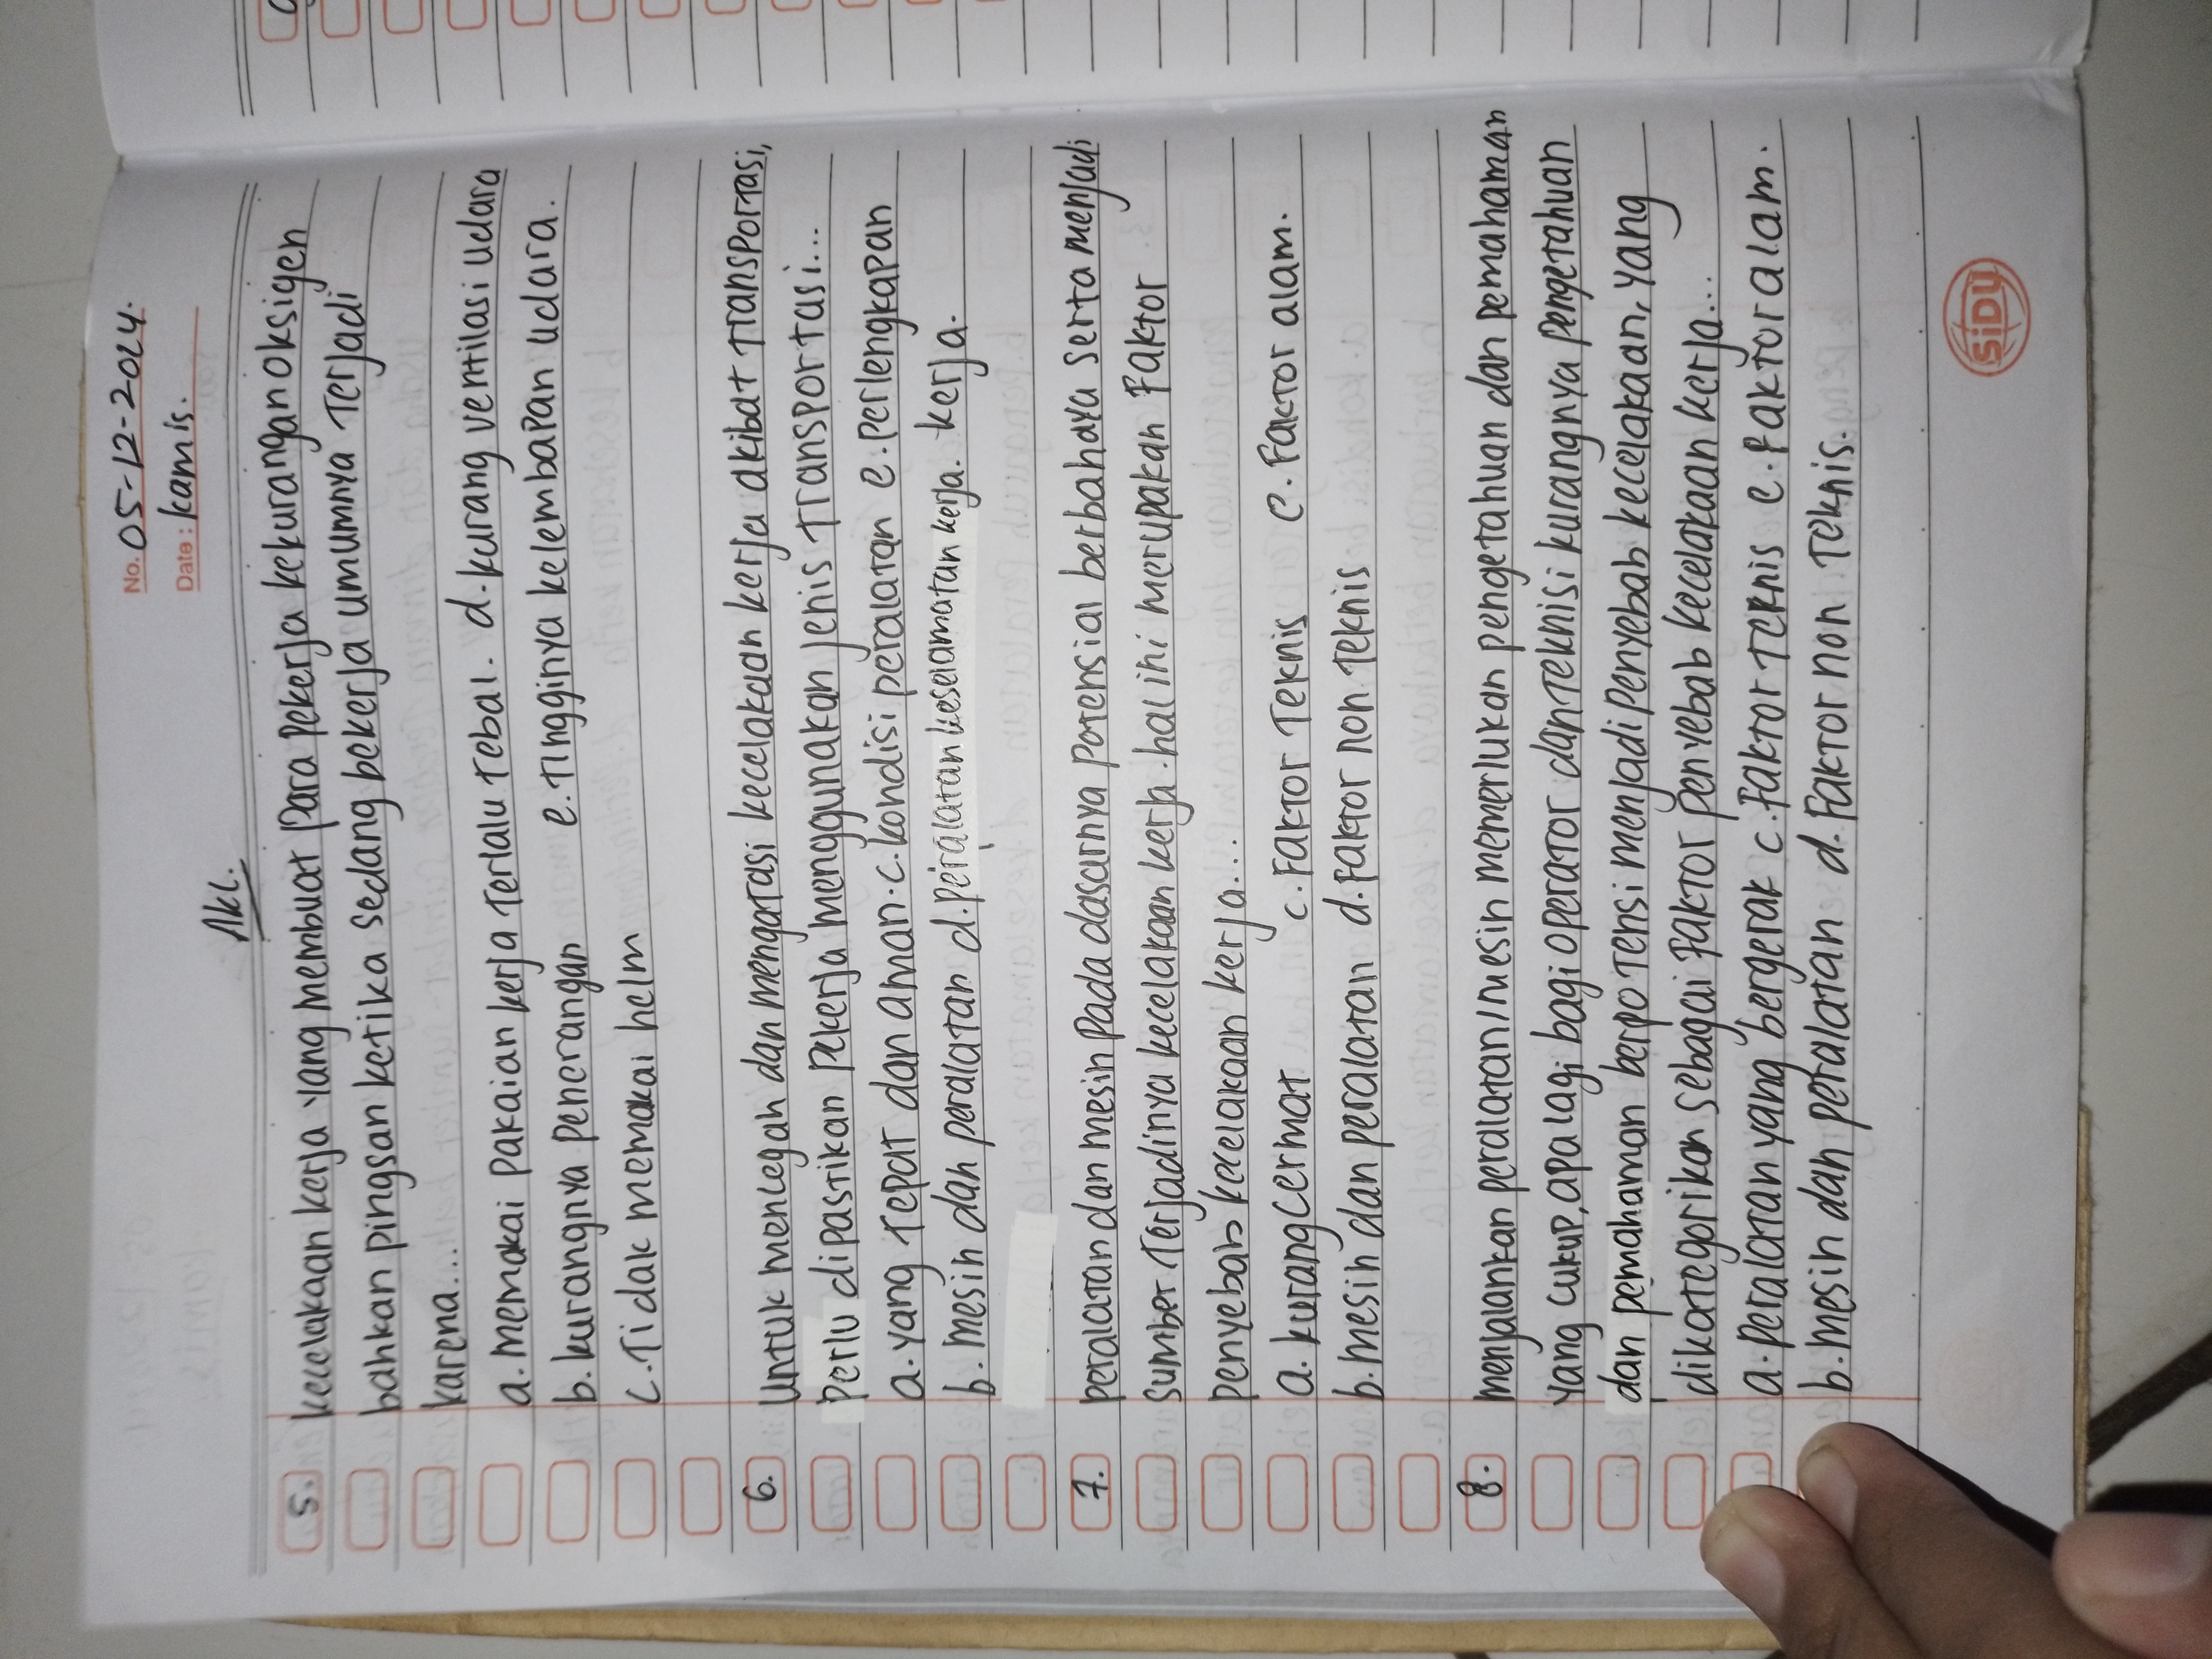 No. 05-12-2024.
Date : kamis.
AKL.
5. kecelakaan kerja yang membuat para pekerja kekurangan oksigen
bahkan pingsan ketika sedang bekerja umumnya Terjadi
karena...
a. memakai pakaian kerja Terlalu tebal. d. kurang ventilasi udara
b. kurangnya penerangan e. tingginya kelembapan udara.
c. Tidak memakai helm
6. untuk mencegah dan mengatasi kecelakaan kerja akibat transportasi,
perlu dipastikan pekerja menggunakan jenis transportasi...
a. yang tepat dan aman. c. kondisi peralatan e. perlengkapan
b. mesin dan peralatan d. peralatan keselamatan kerja. kerja.
7. peralatan dan mesin pada dasarnya potensial berbahaya serta menjadi
sumber Terjadinya kecelakaan kerja. hal ini merupakan Faktor
penyebab kecelakaan kerja...
a. kurang cermat c. Faktor Teknis e. Faktor alam.
b. mesin dan peralatan d. Faktor non Teknis
8. menjalankan peralatan/mesin memerlukan pengetahuan dan pemahaman
yang cukup, apalagi bagi operator dan teknisi kurangnya pengetahuan
dan pemahaman berpotensi menjadi penyebab kecelakaan, yang
dikategorikan sebagai Faktor penyebab kecelakaan kerja...
a. peralatan yang bergerak c. Faktor teknis e. Faktor alam.
b. mesin dan peralatan d. Faktor non Teknis.
SiDU